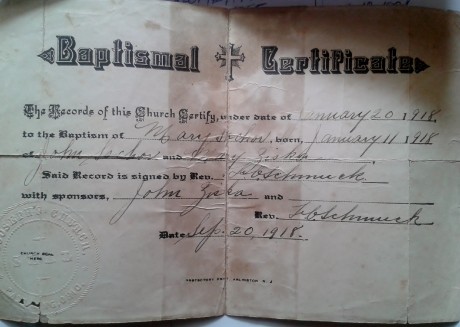 Baptismal Certificate
The Records of this Church Certify, under date of January 20, 1918,
to the Baptism of Mary born, January 11 1918
of John and Mary Ziska
Said Record is signed by Rev. F C Schmuck
with sponsors, John Ziska and
Rev. F C Schmuck
Date Sep. 20, 1918.